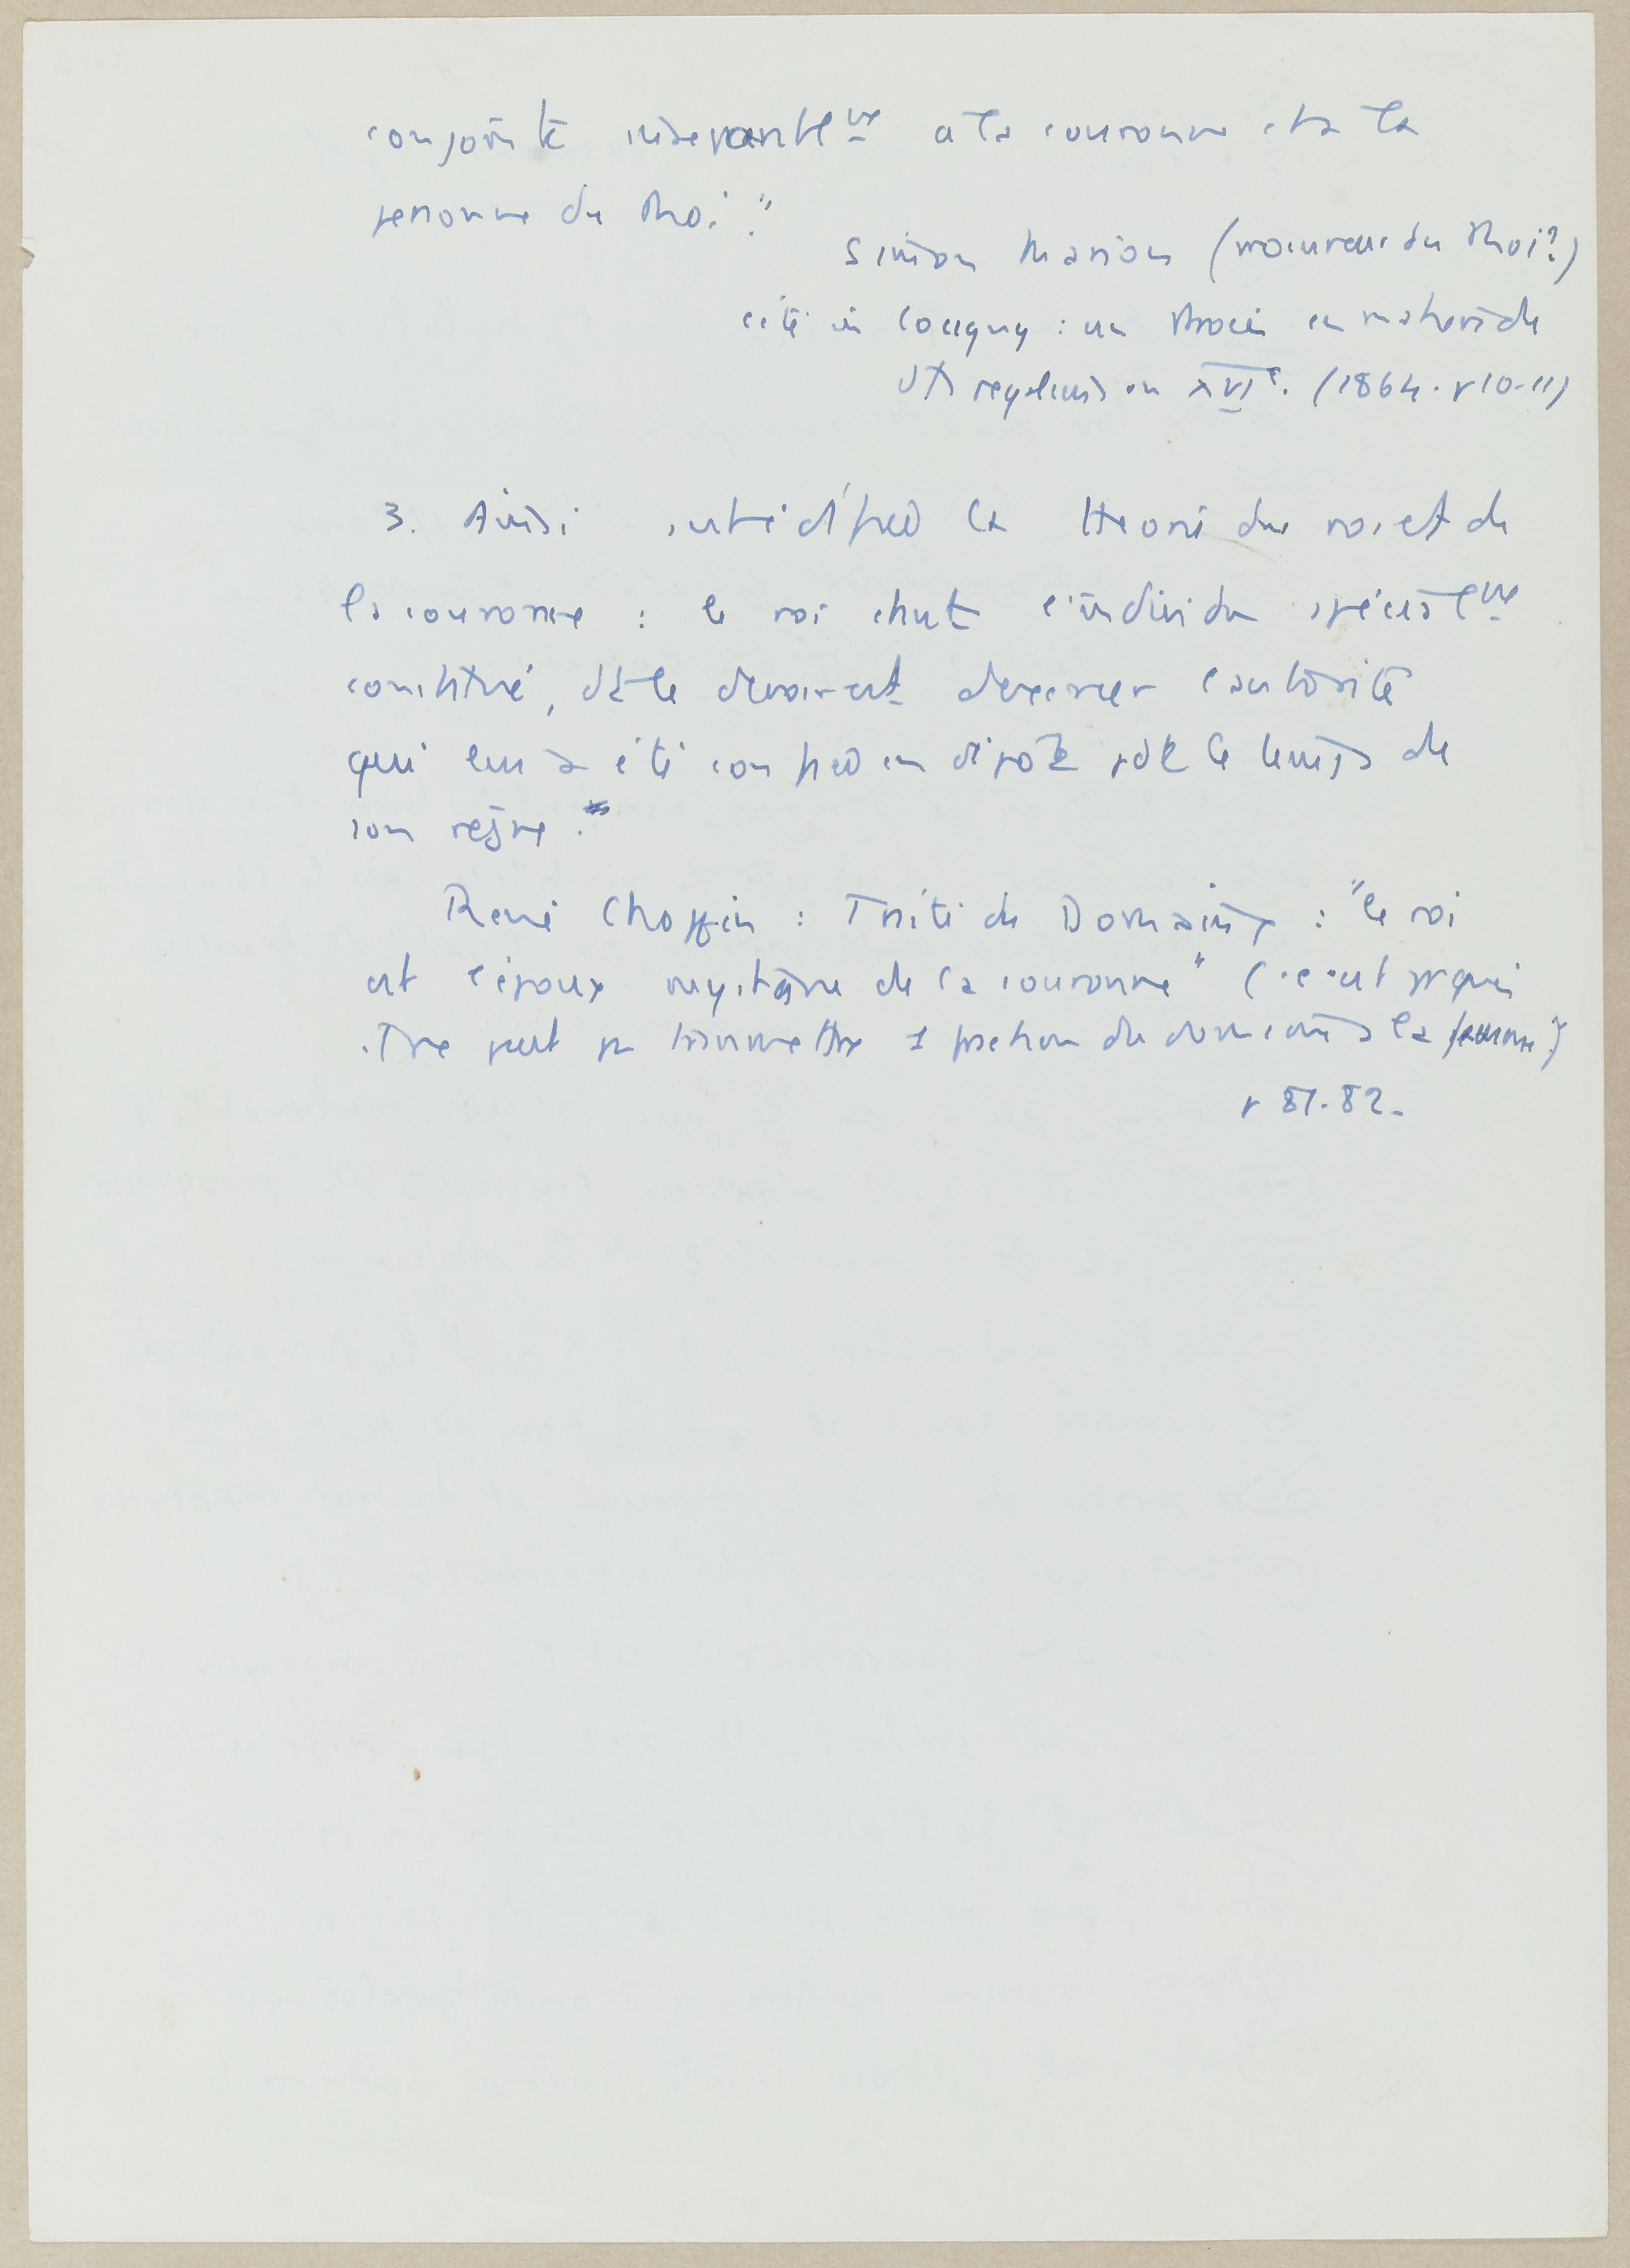 conjointe inséparable^ue à la couronne et à la
personne du Roi."
Simon Marion (procureur du Roi ?)
cité in Cougny : un Procès en matière de
dts régaliens au XVIe. (1864. p 10-11)
3. Ainsi s'est édifiée la théorie du roi et de
la couronne : le roi étant l'individu spéciale^ue
constitué, dt le devoir est d'exercer l'autorité
qui lui a été confiée en dépôt pdt le temps de
son règne.
René Choppin : Traité du Domaine : "le roi
est l'époux mystique de la couronne" (c'est pqui
il ne peut pas transmettre 1 fraction du domaine à la femme)
p 81-82.